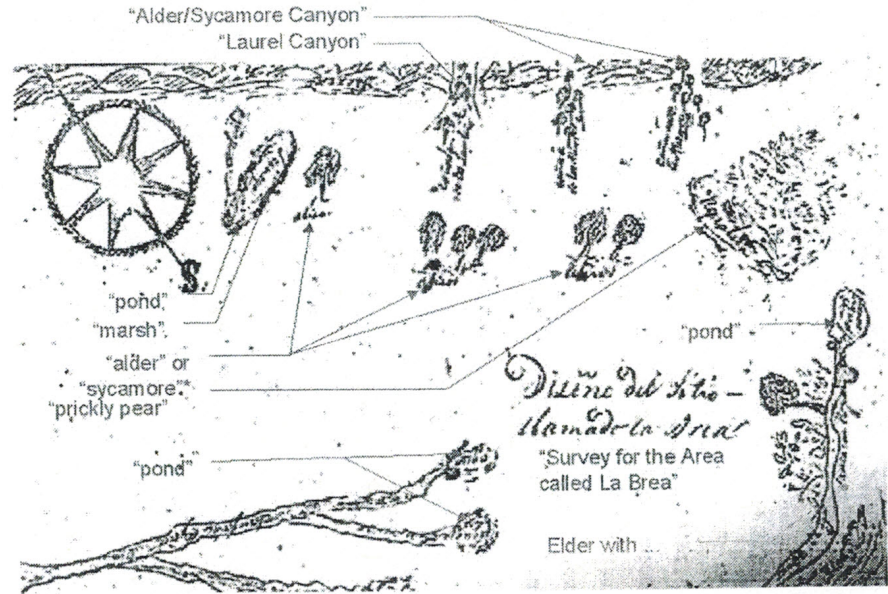 “Alder/Sycamore Canyon”
“Laurel Canyon”
S.
“pond”
“marsh”.
“alder” or
“sycamore”*
“prickly pear”
“pond”
Diseño del Sitio –
llamado la Brea
“Survey for the Area
called La Brea”
“pond”
Elder with ...